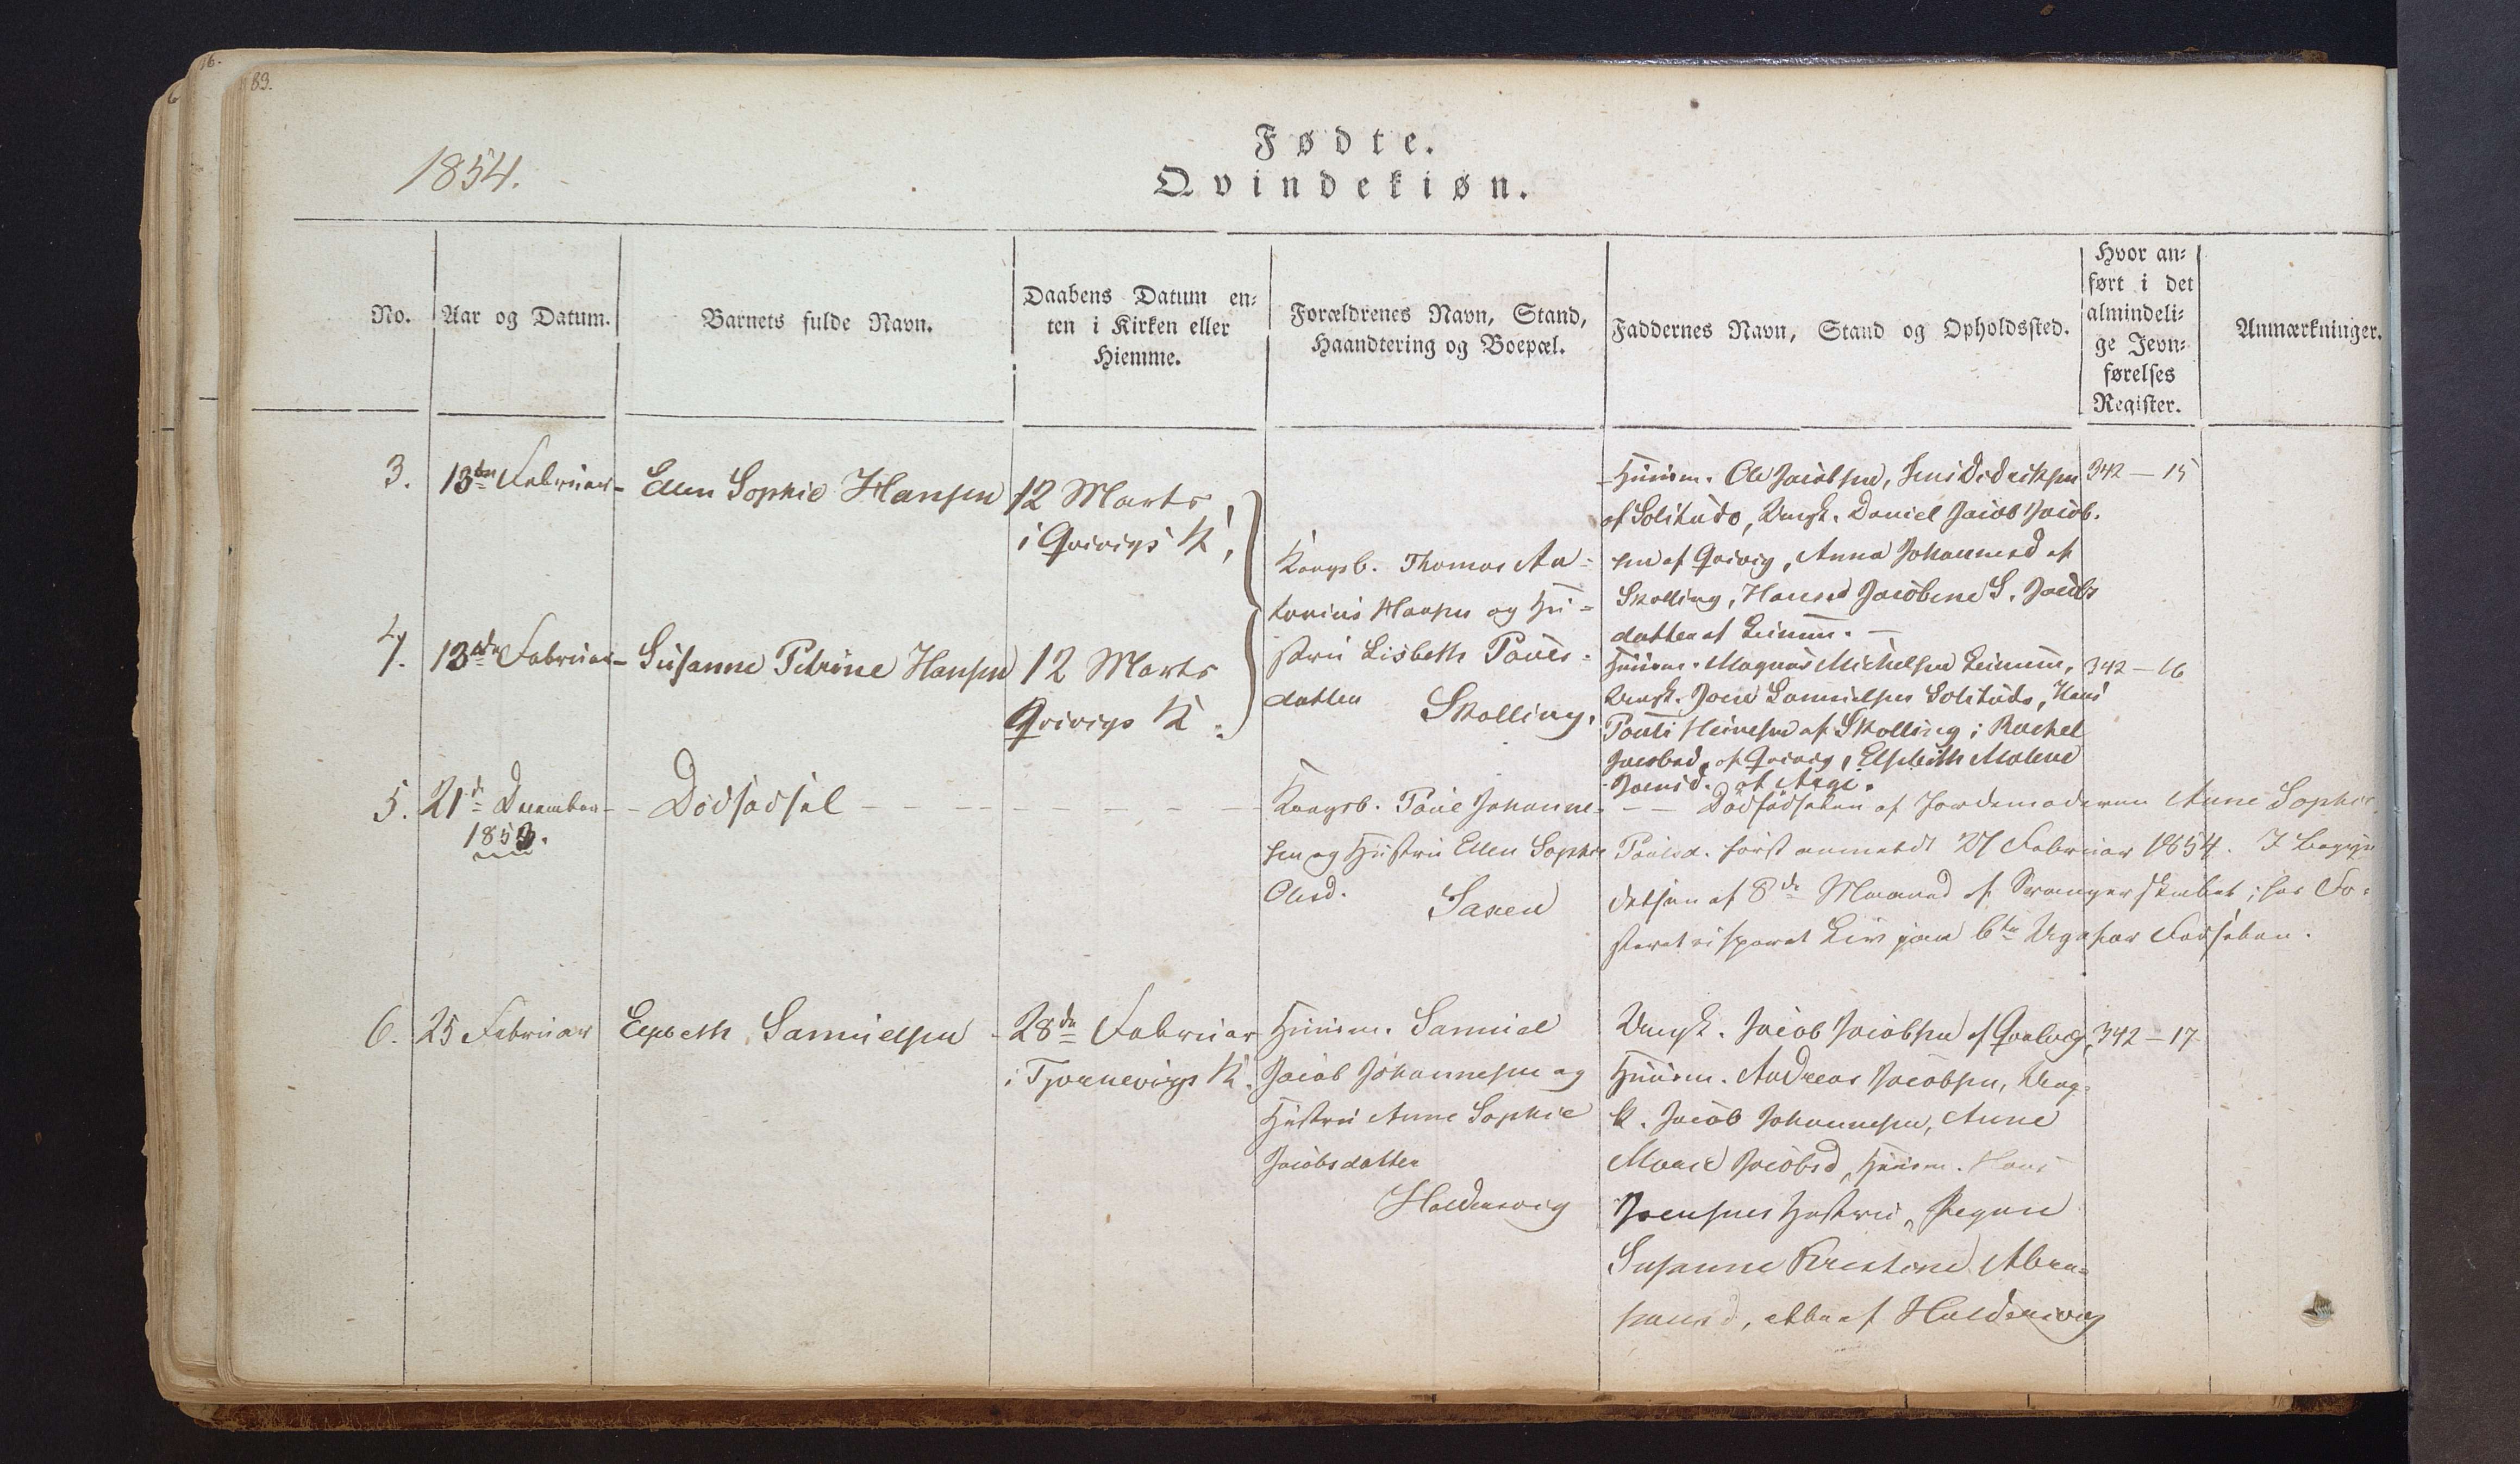 83.
1854.
Fødte.
Qvindekiøn.
No.
Aar og Datum.
Barnets fulde Navn.
Daabens Datum en=
ten i Kirken eller
Hiemme.
Forældrenes Navn, Stand,
Haandtering og Boepæl.
Faddernes Navn, Stand og Opholdssted.
Hvor an=
ført i det
almindeli=
ge Jevn=
førelses
Register.
Anmærkninger.
3.
13de Februar
Ellen Sophie Hansen
12 Marts
i Qvivigs K.
Kongsb. Thomas An=
torius Hansen og Hu=
stru Lisbeth Poüls=
datter
Skælling.
Huusm. Ole Jacobsen, Jens Didriksen
af Solitudo, Ungk. Daniel Jacob Jacob.
sen af Qvivig, Anna Johannesd af
Skælling, Hanne Jacobine S. Jacobs
datter af Leinum.
342 — 15
4.
13de Februar
Susanne Petrine Hansen
12 Marts
Qvivigs K.
Huusm. Magnus Michelsen Leinum,
Ungk. Joen Samuelsen Solitudo, Hans
Pouli Heinesen af Skælling; Rachel
Jacobsd. af Qvivig, Elsebeth Malene
Joensd. af Arge.
342 — 16
5.
21de December
1853.
Dødfødsel
Kongsb. Poül Johanne=
sen og Hustru Ellen Sophie
Olesd.
Saxen
Dødfødselen af Jordemoderen Anne Sophie
Poulsd. først anmeldt 27 Februar 1854. I Begyn
delsen af 8de Maaned af Svangerskabet; har Fo=
steret ei sporet Liv paa 6te Uge før Fødselen.
6.
25 Februar
Elsbeth Samuelsen
28de Februar
i Tjørnevigs K.
Huusm. Samuel
Jacob Johannesen og
Hustru Anne Sophie
Jacobsdatter
Haldersvig
Ungk. Jacob Jacobsen af Qvalvig,
Huusm. Andreas Jacobsen, Ung=
k. Jacob Johannesen, Anne
Marie Jacobsd, Huusm. Hans
Joensens Hustru, Pigen
Susanne Kristine Abra=
hamsd, alle af Haldersvig
342 — 17